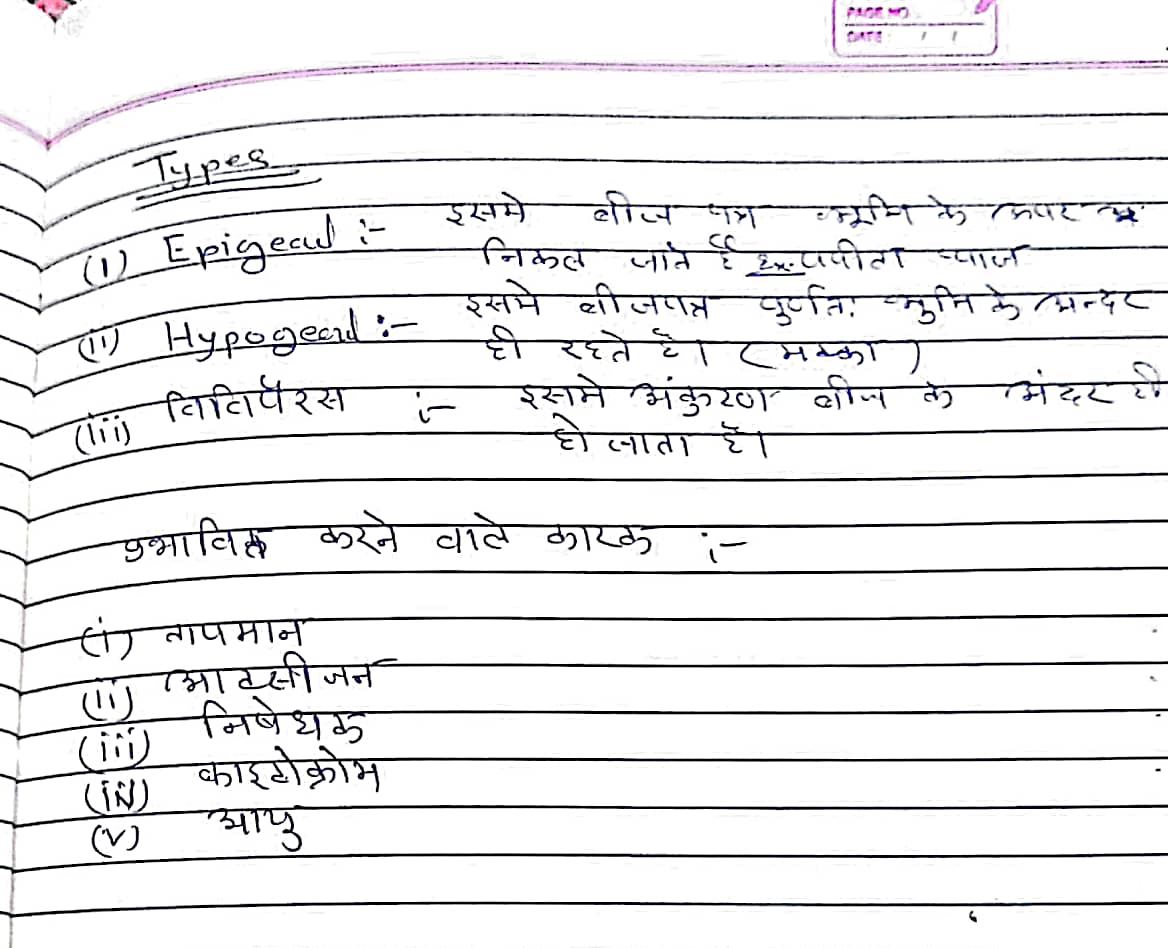 PAGE NO
DATE / /
Types
(i) Epigeal :- इसमे बीज पत्र भूमि के ऊपर
निकल जाते है Ex- पपीता प्याज
(ii) Hypogeal :- इसमे बीजपत्र पुर्णतः भुमि के अन्दर
ही रहते है। (मक्का)
(iii) विविपैरस :- इसमे अंकुरण बीज के अंदर ही
हो जाता है।
प्रभावित करने वाले कारक :-
(i) तापमान
(ii) आक्सीजन
(iii) निषेधक
(iv) फाइटोक्रोम
(v) आयु